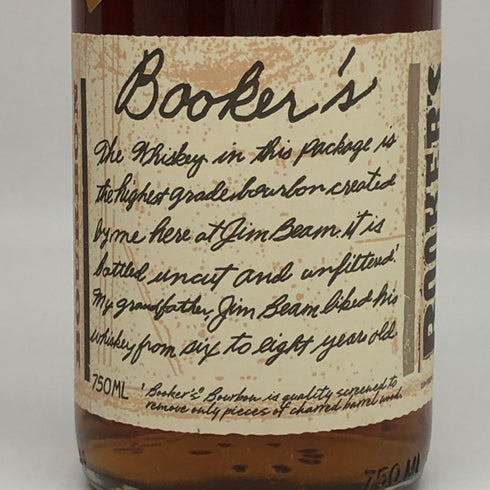 Booker's
The Whiskey in this package is
the highest grade bourbon created
by me here at Jim Beam it is
bottled uncut and unfiltered!
My grandfather, Jim Beam liked his
whiskey from six to eight years old
750ML
' Booker's® Bourbon is quality screened to
remove only pieces of charred barrel wood.
BOOKER'S
750 Ml